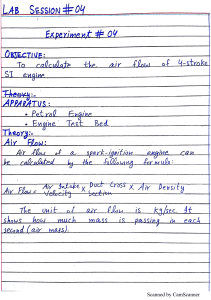 LAB SESSION # 04
Experiment # 04
OBJECTIVE:
To calculate the air flow of 4-stroke
SI engine
Theory:
APPARATUS:
• Petrol Engine
• Engine Test Bed
Theory:
Air Flow:
Air flow of a spark-ignition engine can
be calculated by the following formula:
Air Flow = Air Intake Velocity × Duct Cross Section × Air Density
The unit of air flow is kg/sec. It
shows how much mass is passing in each
second (air mass).
Scanned by CamScanner